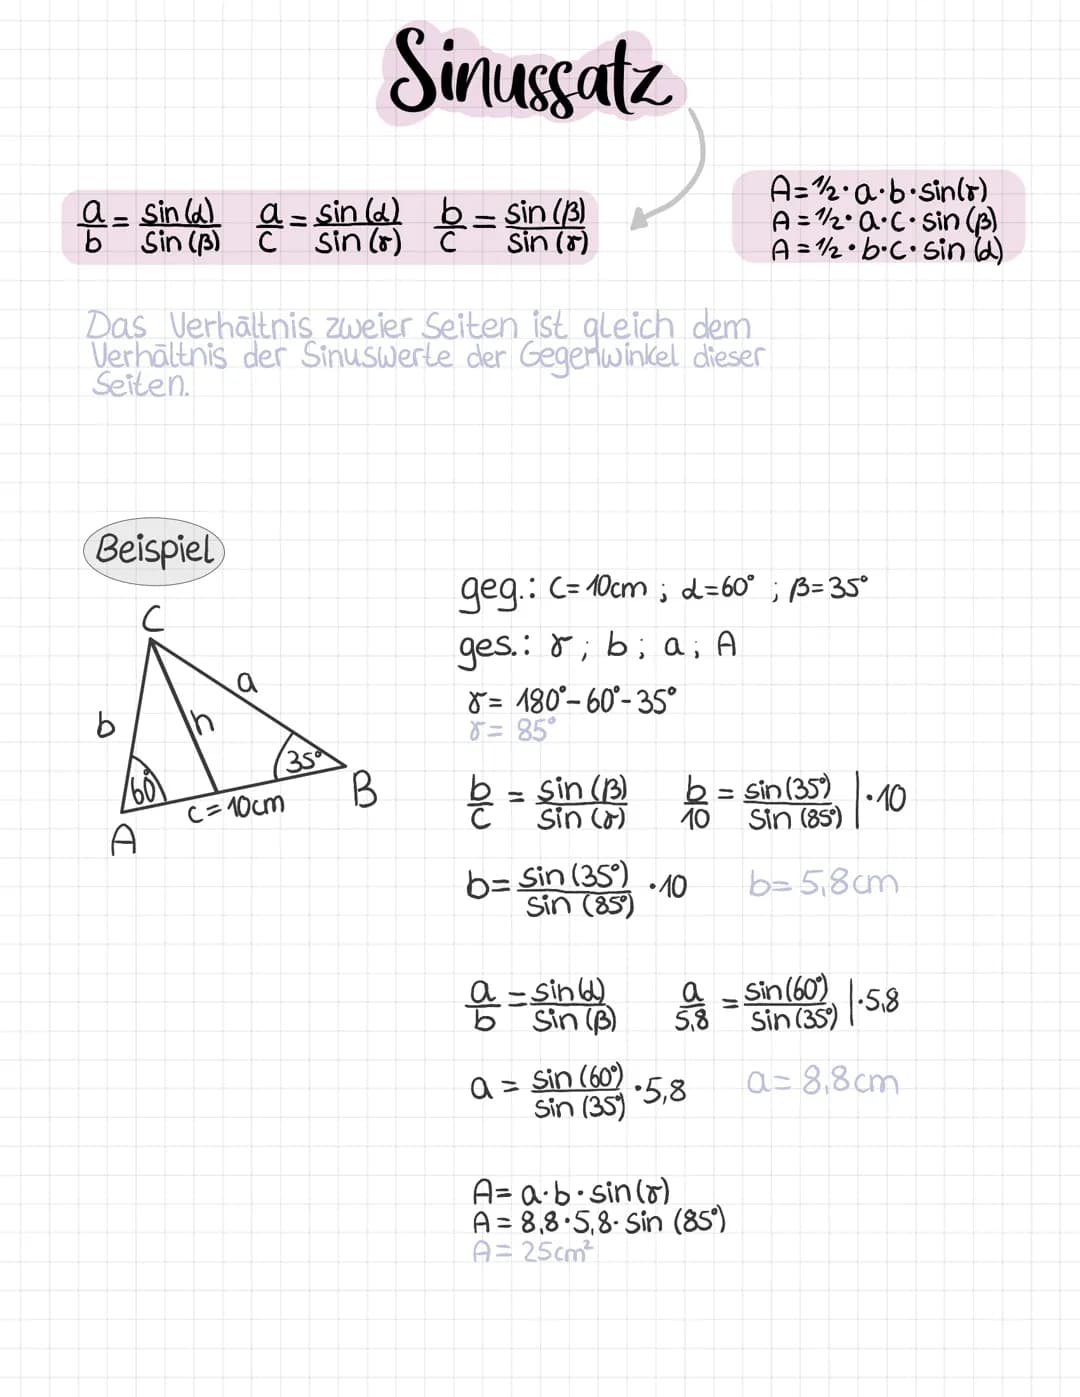 Sinussatz
a/b = sin(α)/sin(β) a/c = sin(α)/sin(γ) b/c = sin(β)/sin(γ)
A=½·a·b·sin(γ)
A=½·a·c·sin(β)
A=½·b·c·sin(α)
Das Verhältnis zweier Seiten ist gleich dem
Verhältnis der Sinuswerte der Gegenwinkel dieser
Seiten.
Beispiel
C
a
b
h
60°
35°
c=10cm
A
B
geg.: c=10cm ; α=60° ; β=35°
ges.: γ; b; a; A
γ= 180°-60°-35°
γ= 85°
b/c = sin(β)/sin(γ) b/10 = sin(35°)/sin(85°) |·10
b= sin(35°)/sin(85°) ·10 b=5,8cm
a/b = sin(α)/sin(β) a/5,8 = sin(60°)/sin(35°) |·5,8
a = sin(60°)/sin(35°) ·5,8 a=8,8cm
A= a·b·sin(γ)
A= 8,8·5,8·sin(85°)
A= 25cm²